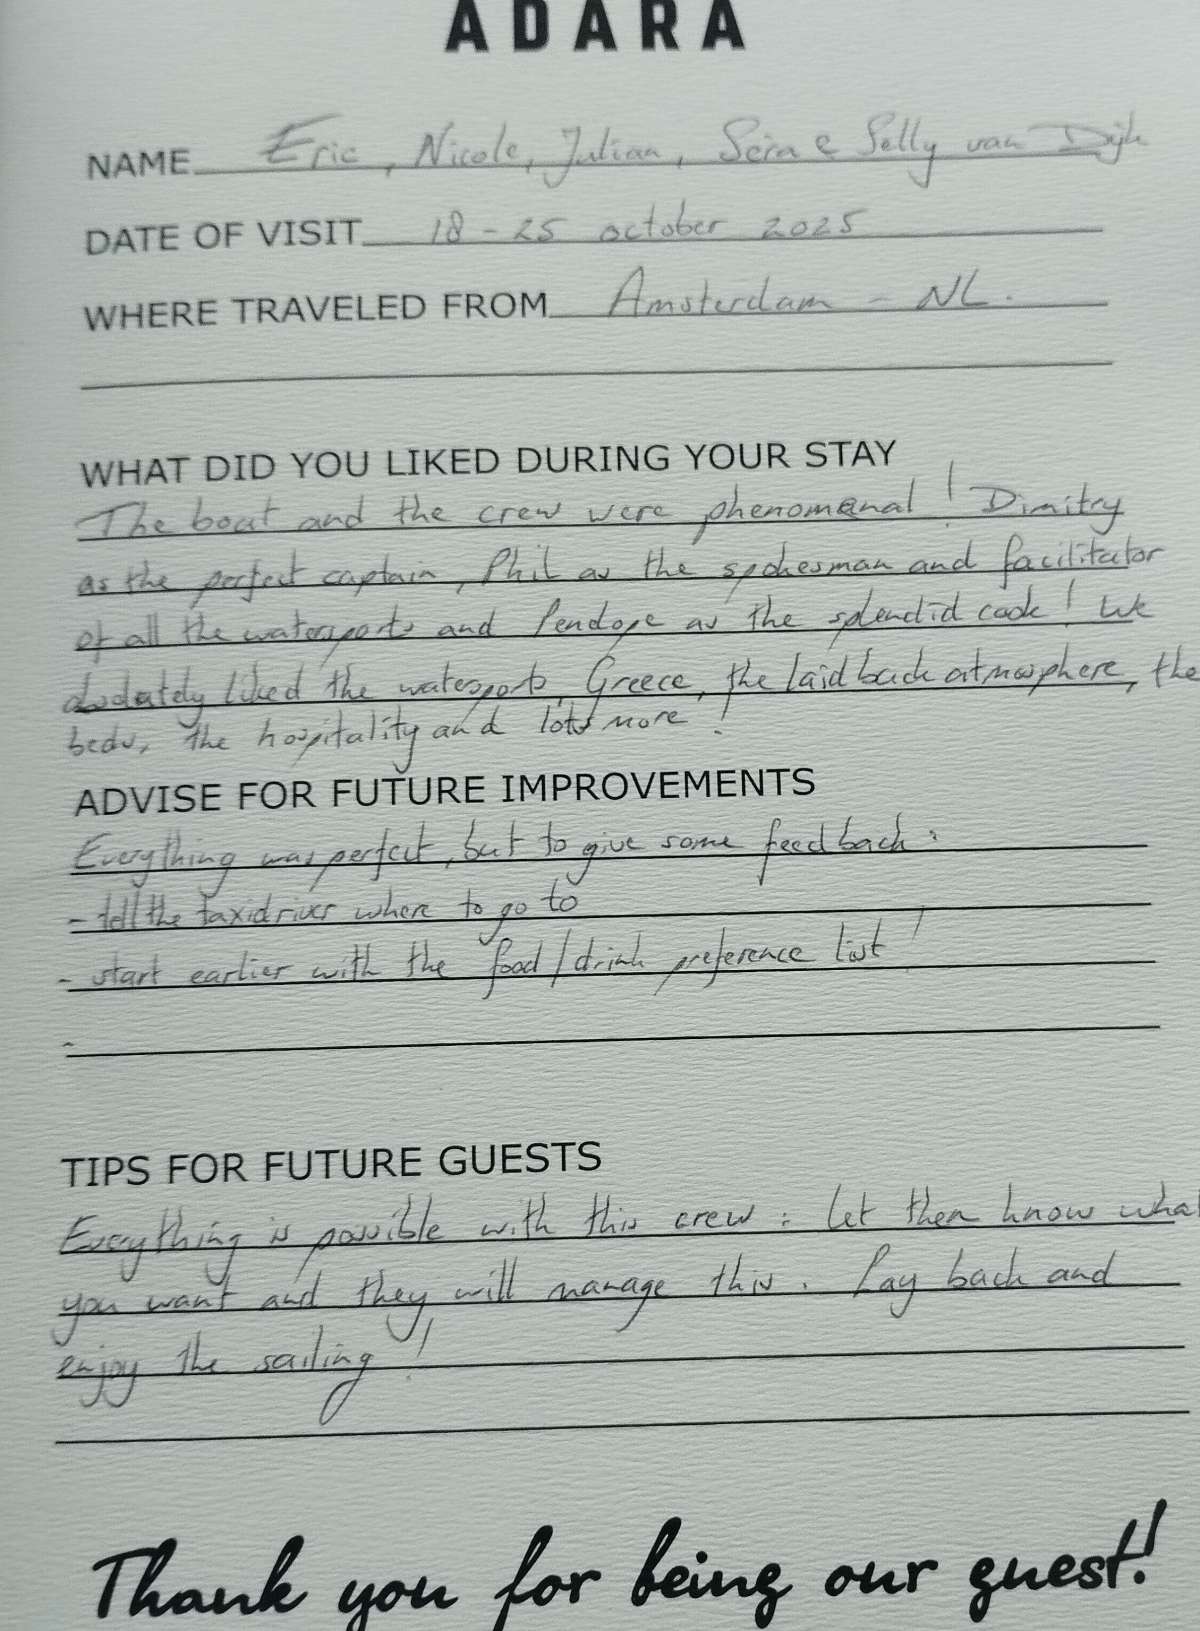 ADARA
NAME Eric, Nicole, Julian, Sera e Selly van Dijk
DATE OF VISIT 18 - 25 october 2025
WHERE TRAVELED FROM Amsterdam - NL.
WHAT DID YOU LIKED DURING YOUR STAY
The boat and the crew were phenomenal! Dimitry
as the perfect captain, Phil as the spokesman and facilitator
of all the watersports and Penelope as the splendid cook! We
absolutely liked the watersports, Greece, the laid back atmosphere, the
beds, the hospitality and lots more!
ADVISE FOR FUTURE IMPROVEMENTS
Everything was perfect, but to give some feedback:
- tell the taxidriver where to go to
- start earlier with the food/drink preference list!
-
TIPS FOR FUTURE GUESTS
Everything is possible with this crew: let them know what
you want and they will manage this. Lay back and
enjoy the sailing!
Thank you for being our guest!